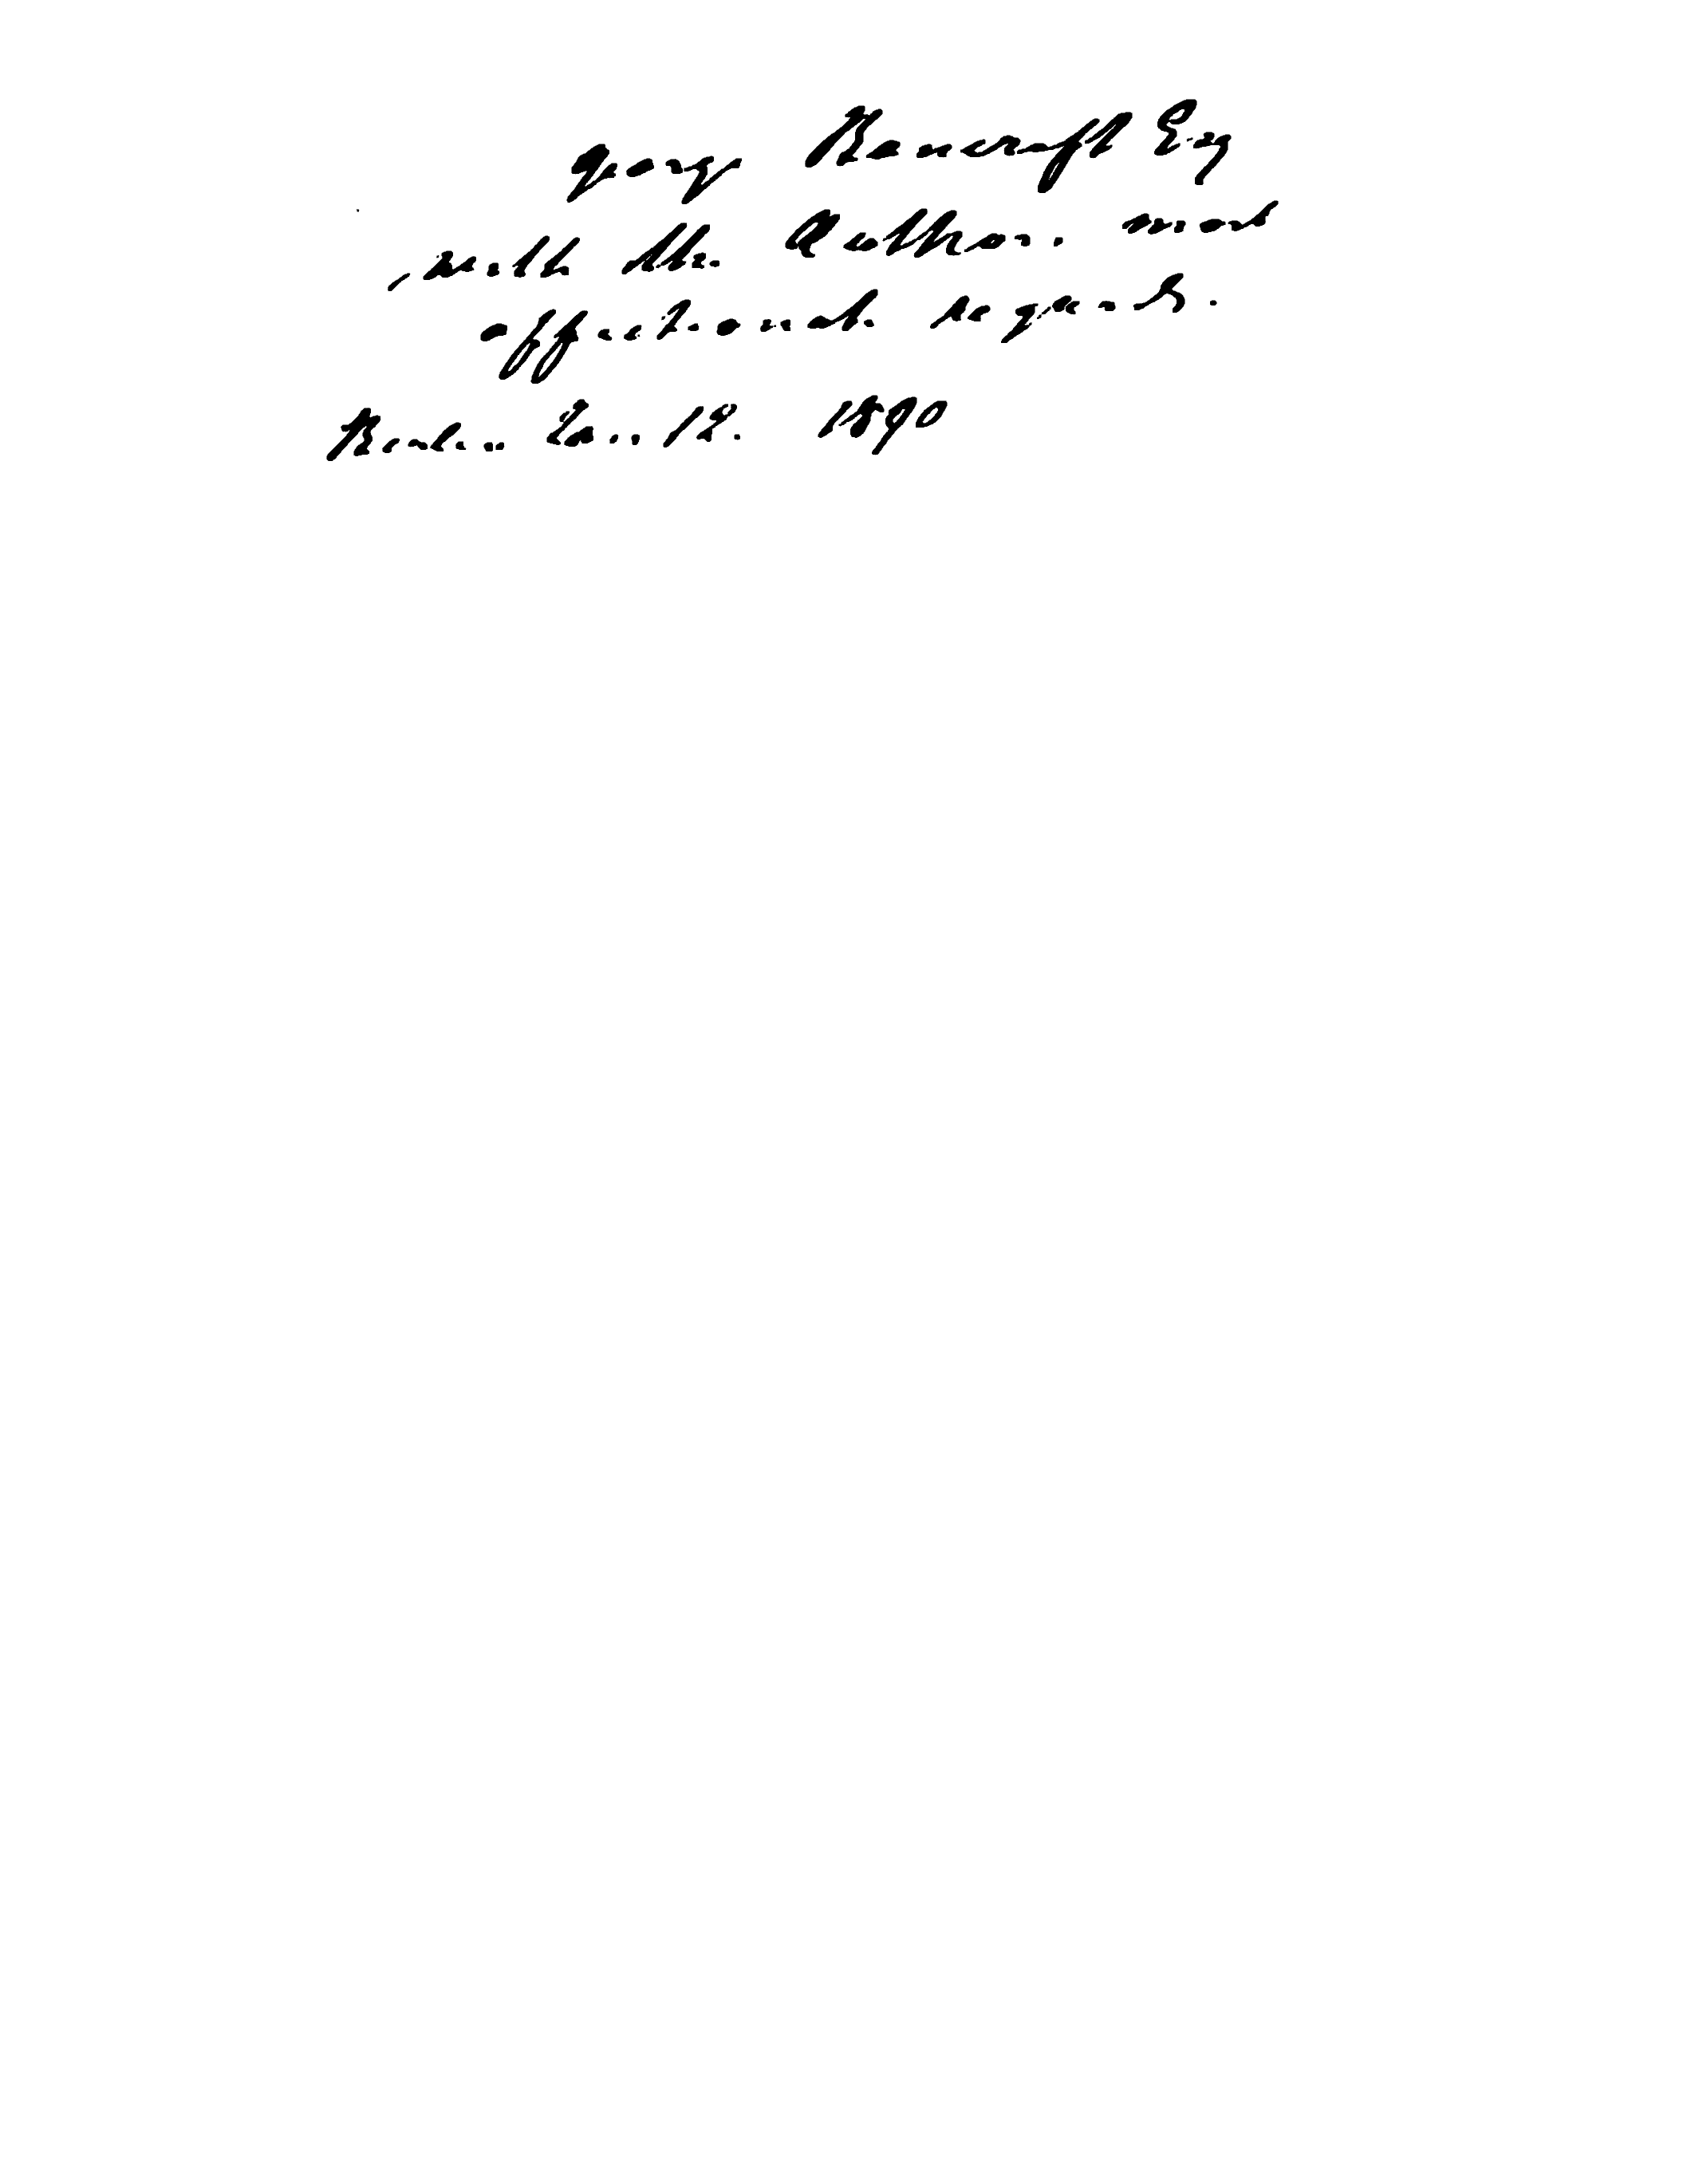 George Bancroft Esq
with the Author's most
affectionate regards.
Boston 12. 1890